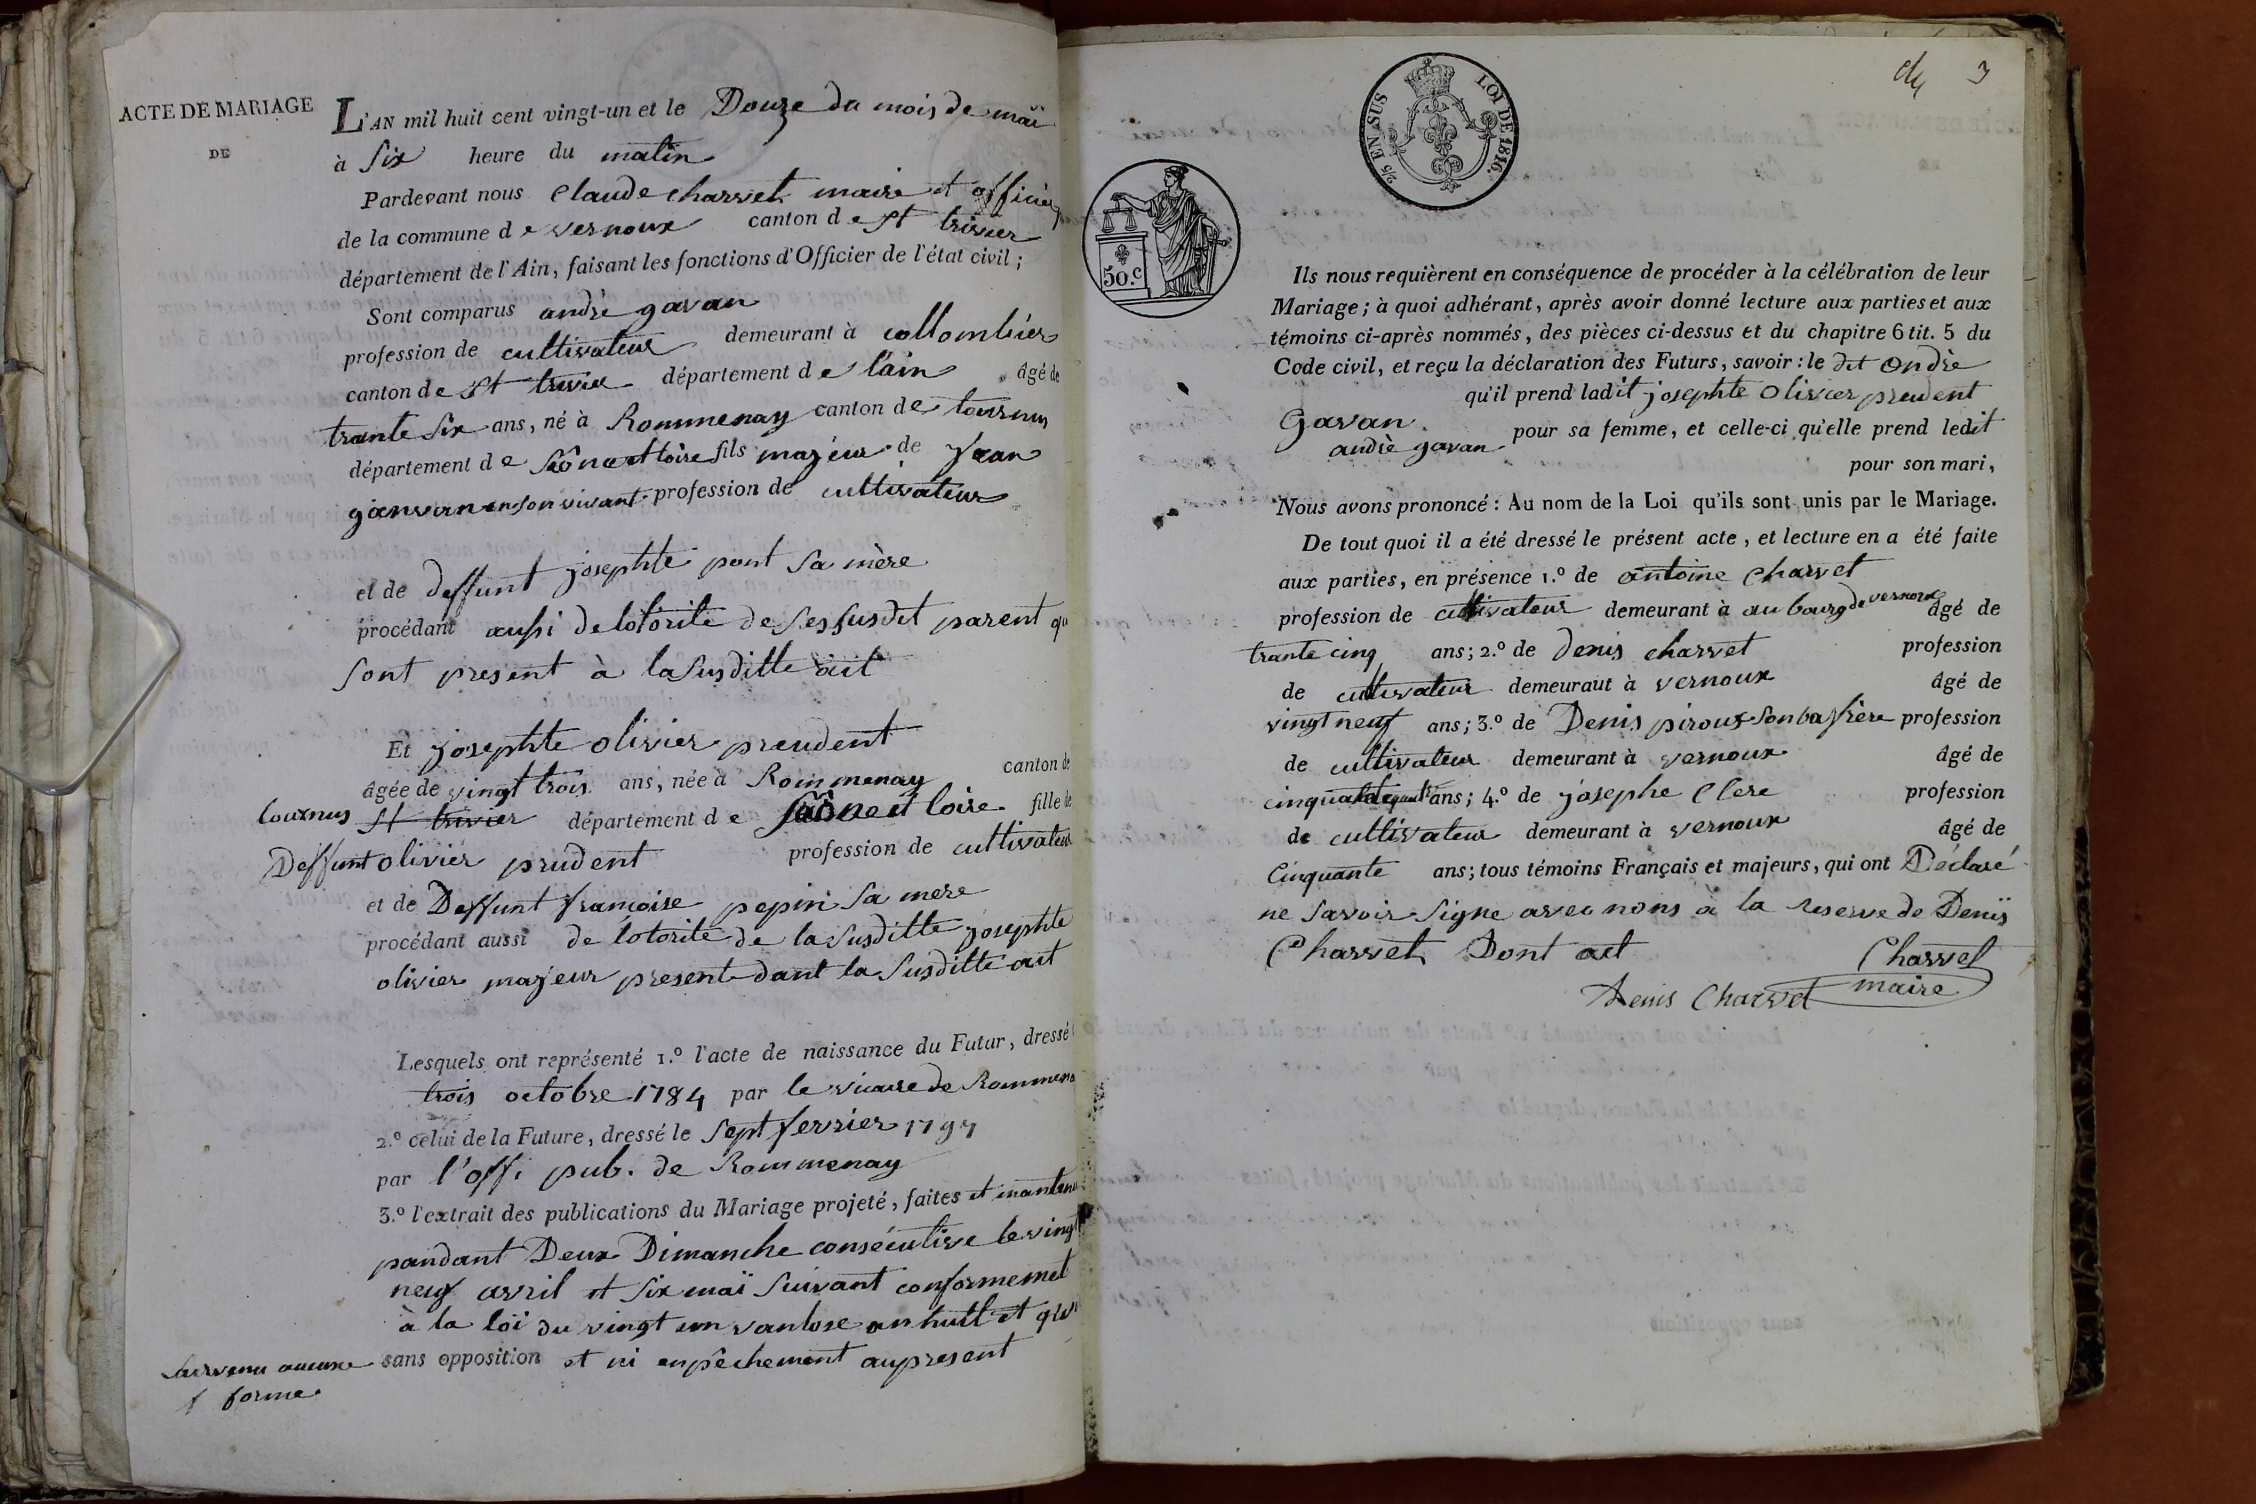 ACTE DE MARIAGE
DE
L'AN mil huit cent vingt-un et le Douze du mois de maï
à Six heure du matin
Pardevant nous Claude charvet maire et officier
de la commune de vernoux canton de St trivier
département de l'Ain, faisant les fonctions d'Officier de l'état civil ;
Sont comparus andrè gavan
profession de cultivateur demeurant à collombier
canton de St trivier département de l'ain âgé de
trante Six ans, né à Rommenay canton de tournus
département de Sâone et loire fils majeur de Jean
ganvan en son vivant profession de cultivateur
et de deffunt josephte pont Sa mère
procédant aussi de lotorite de Ses susdit parent qu
Sont present à la Susditte ait
Et josephte olivier preudent
âgée de vingt trois ans, née à Rommenay canton de
tournus St trivier département de Saône et loire fille de
Deffunt olivier prudent profession de cultivateur
et de Deffunt francoise pepin Sa mere
procédant aussi de lotorité de la Susditte josephte
olivier majeur present dant la Susditte ait
Lesquels ont représenté 1.º l'acte de naissance du Futur, dressé
trois octobre 1784 par le vicaire de Rommena
2.º celui de la Future, dressé le Sept fevrier 1797
par l'offi pub. de Rommenay
3.º l'extrait des publications du Mariage projeté, faites et
pandant Deux Dimanche consécutive le vingt
neuf avril et Six maï Suivant conformemet
à la loï du vingt un vantose an huit et
Survenu aucune sans opposition et ni enpêchement au present
forme
3
2/5 EN SUS LOI DE 1816.
50.c
Ils nous requièrent en conséquence de procéder à la célébration de leur
Mariage ; à quoi adhérant, après avoir donné lecture aux parties et aux
témoins ci-après nommés, des pièces ci-dessus et du chapitre 6 tit. 5 du
Code civil, et reçu la déclaration des Futurs, savoir : le dit Andrè
Gavan qu'il prend ladit josephte olivier preudent
pour sa femme, et celle-ci qu'elle prend ledit
andrè gavan pour son mari,
Nous avons prononcé : Au nom de la Loi qu'ils sont unis par le Mariage.
De tout quoi il a été dressé le présent acte, et lecture en a été faite
aux parties, en présence 1.º de antoine charvet
profession de cultivateur demeurant à au bourg de vernoux âgé de
trante cinq ans ; 2.º de denis charvet profession
de cultivateur demeurant à vernoux âgé de
vingt neuf ans ; 3.º de Denis piroux Son baffrère profession
de cultivateur demeurant à vernoux âgé de
ans ; 4.º de josephe Clere profession
de cultivateur demeurant à vernoux âgé de
Cinquante ans ; tous témoins Français et majeurs, qui ont Déclaré
ne Savoir Signe avec nous à la reserve de Denis
Charvet Dont act
Charvet
maire
Denis Charvet